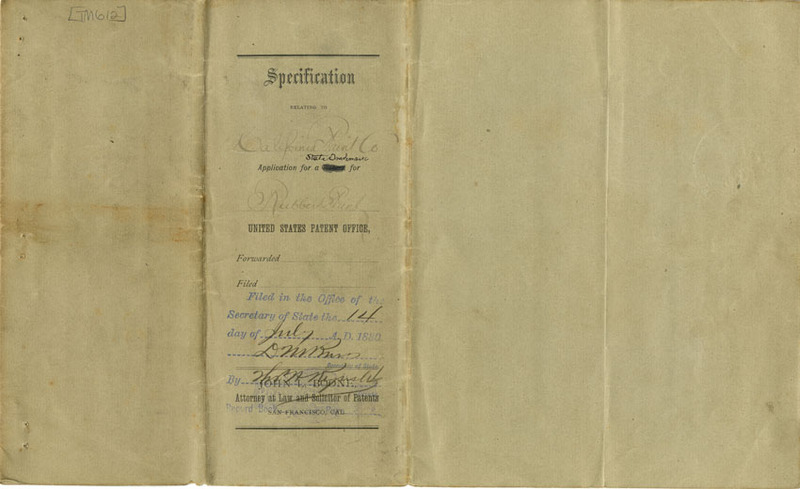 [TM612]
Specification
RELATING TO
California Paint Co
State Trademark
Application for a for
Rubber Paint
UNITED STATES PATENT OFFICE,
Forwarded
Filed
Filed in the Office of the
Secretary of State the 14
day of July A.D. 1880
D M Burns
Secretary of State
By
JOHN L. BOONE,
Attorney at Law and Solicitor of Patents
Record Book
SAN FRANCISCO, CAL.